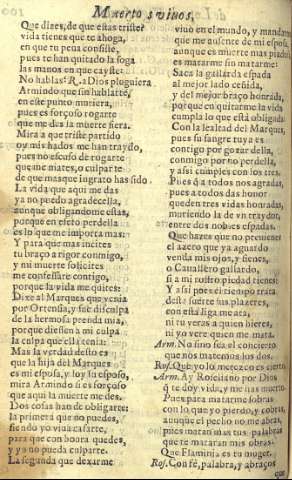 Muerto y viuos,
Que dizes, de que estas triste?
vida tienes que te ahoga,
en que tu pena consiste,
pues te han quitado la soga
las manos en que cayste:
No hablas? R. a Dios pluguiera
Armindo que sin hablarte,
en este punto muriera,
pues es forçoso rogarte
que me des la muerte fiera.
Mira a que triste partido
oy mis hados me han traydo,
pues no escuso de rogarte
que me mates, o culparte
de que mas que ingrato has sido.
La vida que aqui me das
ya no puedo agradecella,
aunque obligandome estas,
porque en efeto perdella
es lo que me importa mas:
Y para que mas incites
tu braço a rigor conmigo,
y mi muerte solicites
me confessare contigo,
porque la vida me quites:
Dixe al Marques que venia
por Ortensia, y fue disculpa
de la hermosa prenda mia,
porque diessen a mi culpa
la culpa que ella tenia:
Mas la verdad desto es
que la hija del Marques
es mi esposa, y soy su esposo,
mira Armindo si es forçoso
que aqui la muerte me des.
Dos cosas han de obligarte:
la primera que no puedes,
siendo yo viuo casarte,
para que con honra quedes,
y yo no pueda culparte.
La segunda que dexarme
viuo en el mundo, y mandarme
que me ausente de mi esposa,
aunque es muerte mas piadosa
es matarme sin matarme:
Saca la gallarda espada
al mejor lado ceñida,
y del mejor braço honrada,
porque en quitarme la vida
cumpla lo que està obligada
Con la lealtad del Marques,
pues su sangre tuya es
contigo por gozar della,
conmigo por no perdella,
y assi cumples con los tres.
Pues q̃ a todos nos agradas,
pues a todos das honor
queden tres vidas honradas,
muriendo la de vn traydor,
entre dos nobles espadas.
Que hazes que no preuienes
el azero que ya aguardo
venda mis ojos, y tienes,
o Cauallero gallardo,
si a mi rostro piedad tienes:
Y assi pues el tiempo trata
desta suerte sus plazeres,
con esta liga me ata,
ni tu veras a quien hieres,
ni yo vere quien me mata.
Arm. No sino sea el concierto
que nos matemos los dos.
Ros. Que yo lo merezco es cierto
Arm. Ay Rosicino por Dios
q̃ te doy vida, y me has muerto.
Pues para matarme sobras
con lo que yo pierdo, y cobras,
aunque el pecho no me abras,
pues mataran mas tus palabras
que te mataran mis obras:
Que Flaminia es tu muger.
Ros. Con fè, palabra, y abraços
que